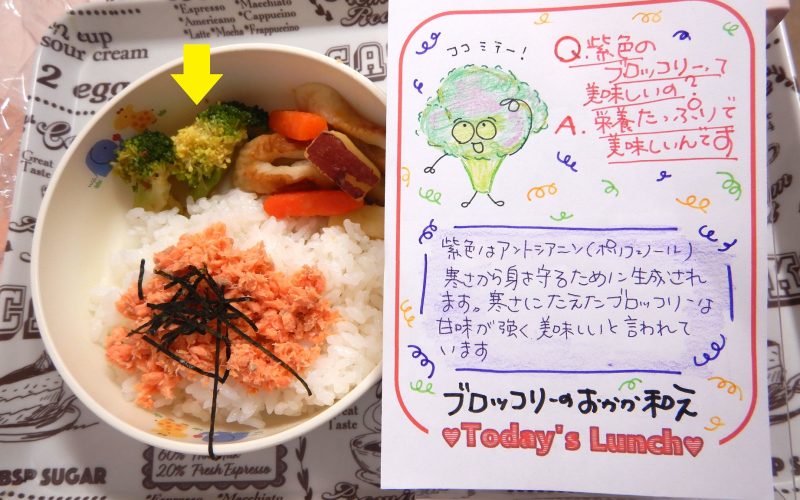 Espresso Macchiato
*Americano *Cappuccino
*Latte *Mocha *Frappuccino
sour cream
2 eggs
Great
Taste
ココ ミテー!
Q.紫色の
ブロッコリーって
美味しいの?
A.栄養たっぷりで
美味しいんです
紫色はアントシアニン(ポリフェノール)
寒さから身を守るために生成され
ます。寒さにたえたブロッコリーは
甘味が強く美味しいと言われて
います
ブロッコリーのおかか和え
♥Today's Lunch♥
SUGAR
60%
20% Fresh Espresso